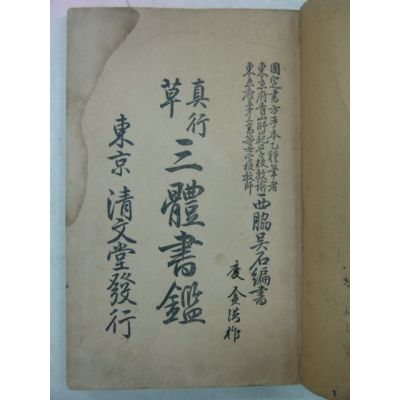 國定書方手本乙種筆者
東京府青山師範學校教諭
東京府立第三高等女學校教師
西脇吳石編書
金洪柞
真行草
三體書鑑
東京 清文堂發行